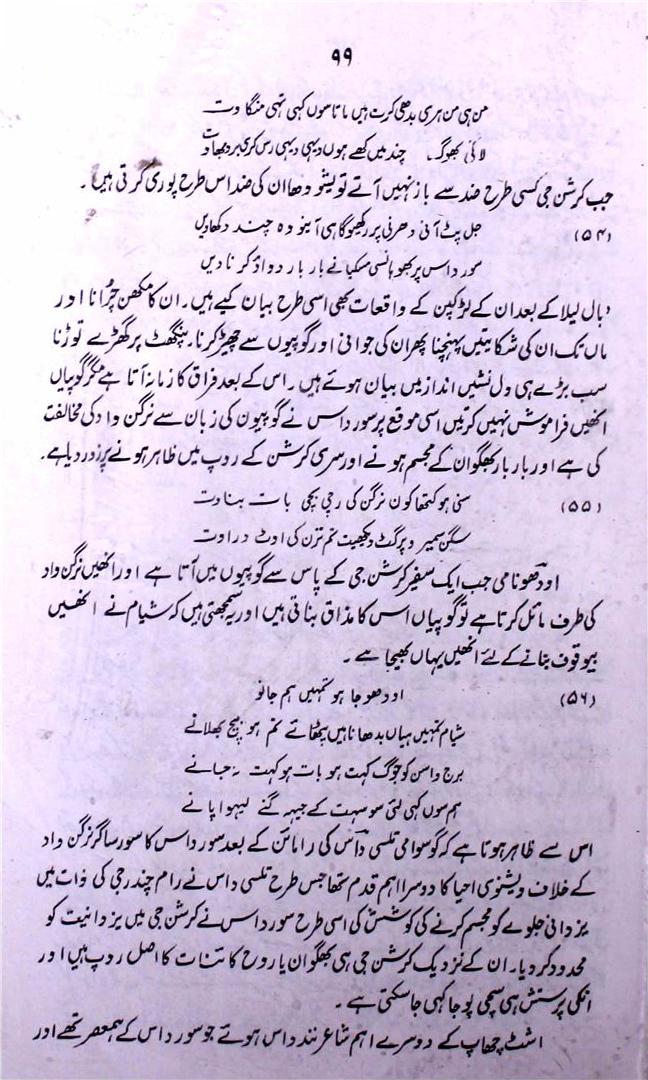 ۹۹
من ہی من ہری بدھی کرت ہیں ماتا سوں کہی تہی منگاوت
لائی بھوگ۔ چند میں کھے ہوں دیہی دیہی رس کری
جب کرشن جی کسی طرح ضد سے باز نہیں آتے تو یشودھا ان کی ضد اس طرح پوری کرتی ہیں۔
(۵۴) جل پٹ آنی دھرنی پر رکھیو گاہی آینو وہ چند دکھادیں
سور داس پربھو ہانسی مسکیانے بار بار دواؤ کر نا دیں
بال لیلا کے بعد ان کے لڑکپن کے واقعات بھی اسی طرح بیان کیے ہیں۔ ان کا مکھن چُرانا اور
ماں تک ان کی شکایتیں پہنچنا پھر ان کی جوانی اور گوپیوں سے چھیڑ کرنا۔ پنگھٹ پر گھڑے توڑنا
سب بڑے ہی دل نشیں انداز میں بیان ہوئے ہیں۔ اس کے بعد فراق کا زمانہ آتا ہے مگر گوپیاں
انھیں فراموش نہیں کرتیں اسی موقع پر سورداس نے گوپیوں کی زبان سے نرگن واد کی مخالفت
کی ہے اور بار بار بھگوان کے مجسم ہونے اور سری کرشن کے روپ میں ظاہر ہونے پر زور دیا ہے۔
(۵۵) سنی ہو کتھا کون نرگن کی رچی پچی بات بناوت
سگن سمیرو پرگٹ دیکھیت تم ترن کی اوٹ دراوت
اودھو نامی جب ایک سفیر کرشن جی کے پاس سے گوپیوں میں آتا ہے اور انھیں نرگن واد
کی طرف مائل کرتا ہے تو گوپیاں اس کا مذاق بناتی ہیں اور یہ سمجھتی ہیں کہ شیام نے انھیں
بیوقوف بنانے کے لئے انھیں یہاں بھیجا ہے۔
(۵۶) اودھو جا ہو تمہیں ہم جانو
شیام تمہیں ہیاں پٹھائے تم ہو بیچ بھلانے
برج واسن کو جوگ کہت ہو بات ہو کہت نہ جانے
ہم سوں کہی لئی سو سہت کے جیہہ گنے لیہو اپانے
اس سے ظاہر ہوتا ہے کہ گوسوامی تلسی داس کی رامائن کے بعد سورداس کا سور ساگر نرگن واد
کے خلاف ویشنوی احیا کا دوسرا اہم قدم تھا جس طرح تلسی داس نے رام چندر جی کی ذات میں
یزدانی جلوے کو مجسم کرنے کی کوشش کی اسی طرح سورداس نے کرشن جی میں یزدانیت کو
محدود کر دیا۔ ان کے نزدیک کرشن جی ہی بھگوان یا روح کائنات کا اصل روپ ہیں اور
انکی پرستش ہی سچی پوجا کہی جاسکتی ہے۔
اشٹ چھاپ کے دوسرے اہم شاعر نند داس ہوئے جو سورداس کے ہمعصر تھے اور